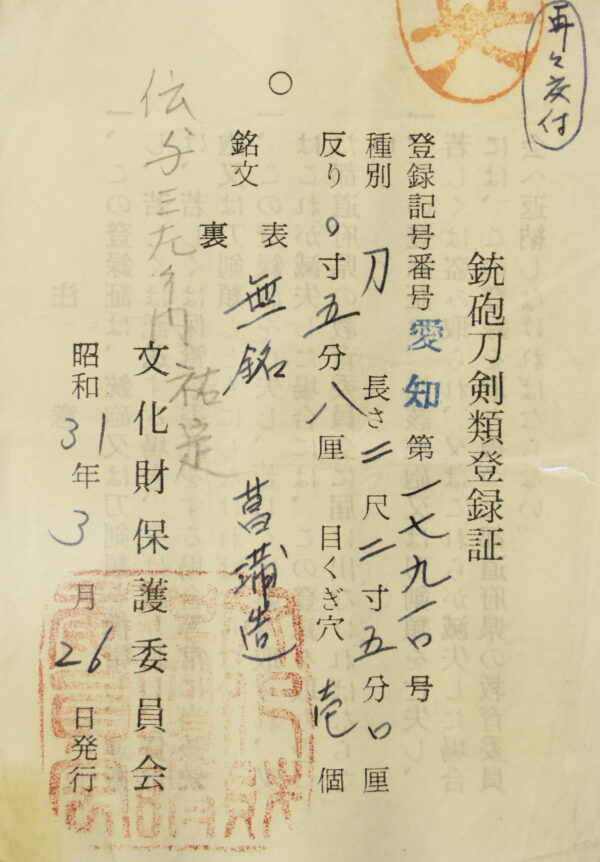 再々交付
銃砲刀剣類登録証
登録記号番号 愛知 第一七九一〇号
種別 刀 長さ 二尺二寸五分〇厘
反り 〇寸五分八厘 目くぎ穴 壱個
銘文 表 無銘 菖蒲造
裏
文化財保護委員会
昭和31年3月26日発行
祐定